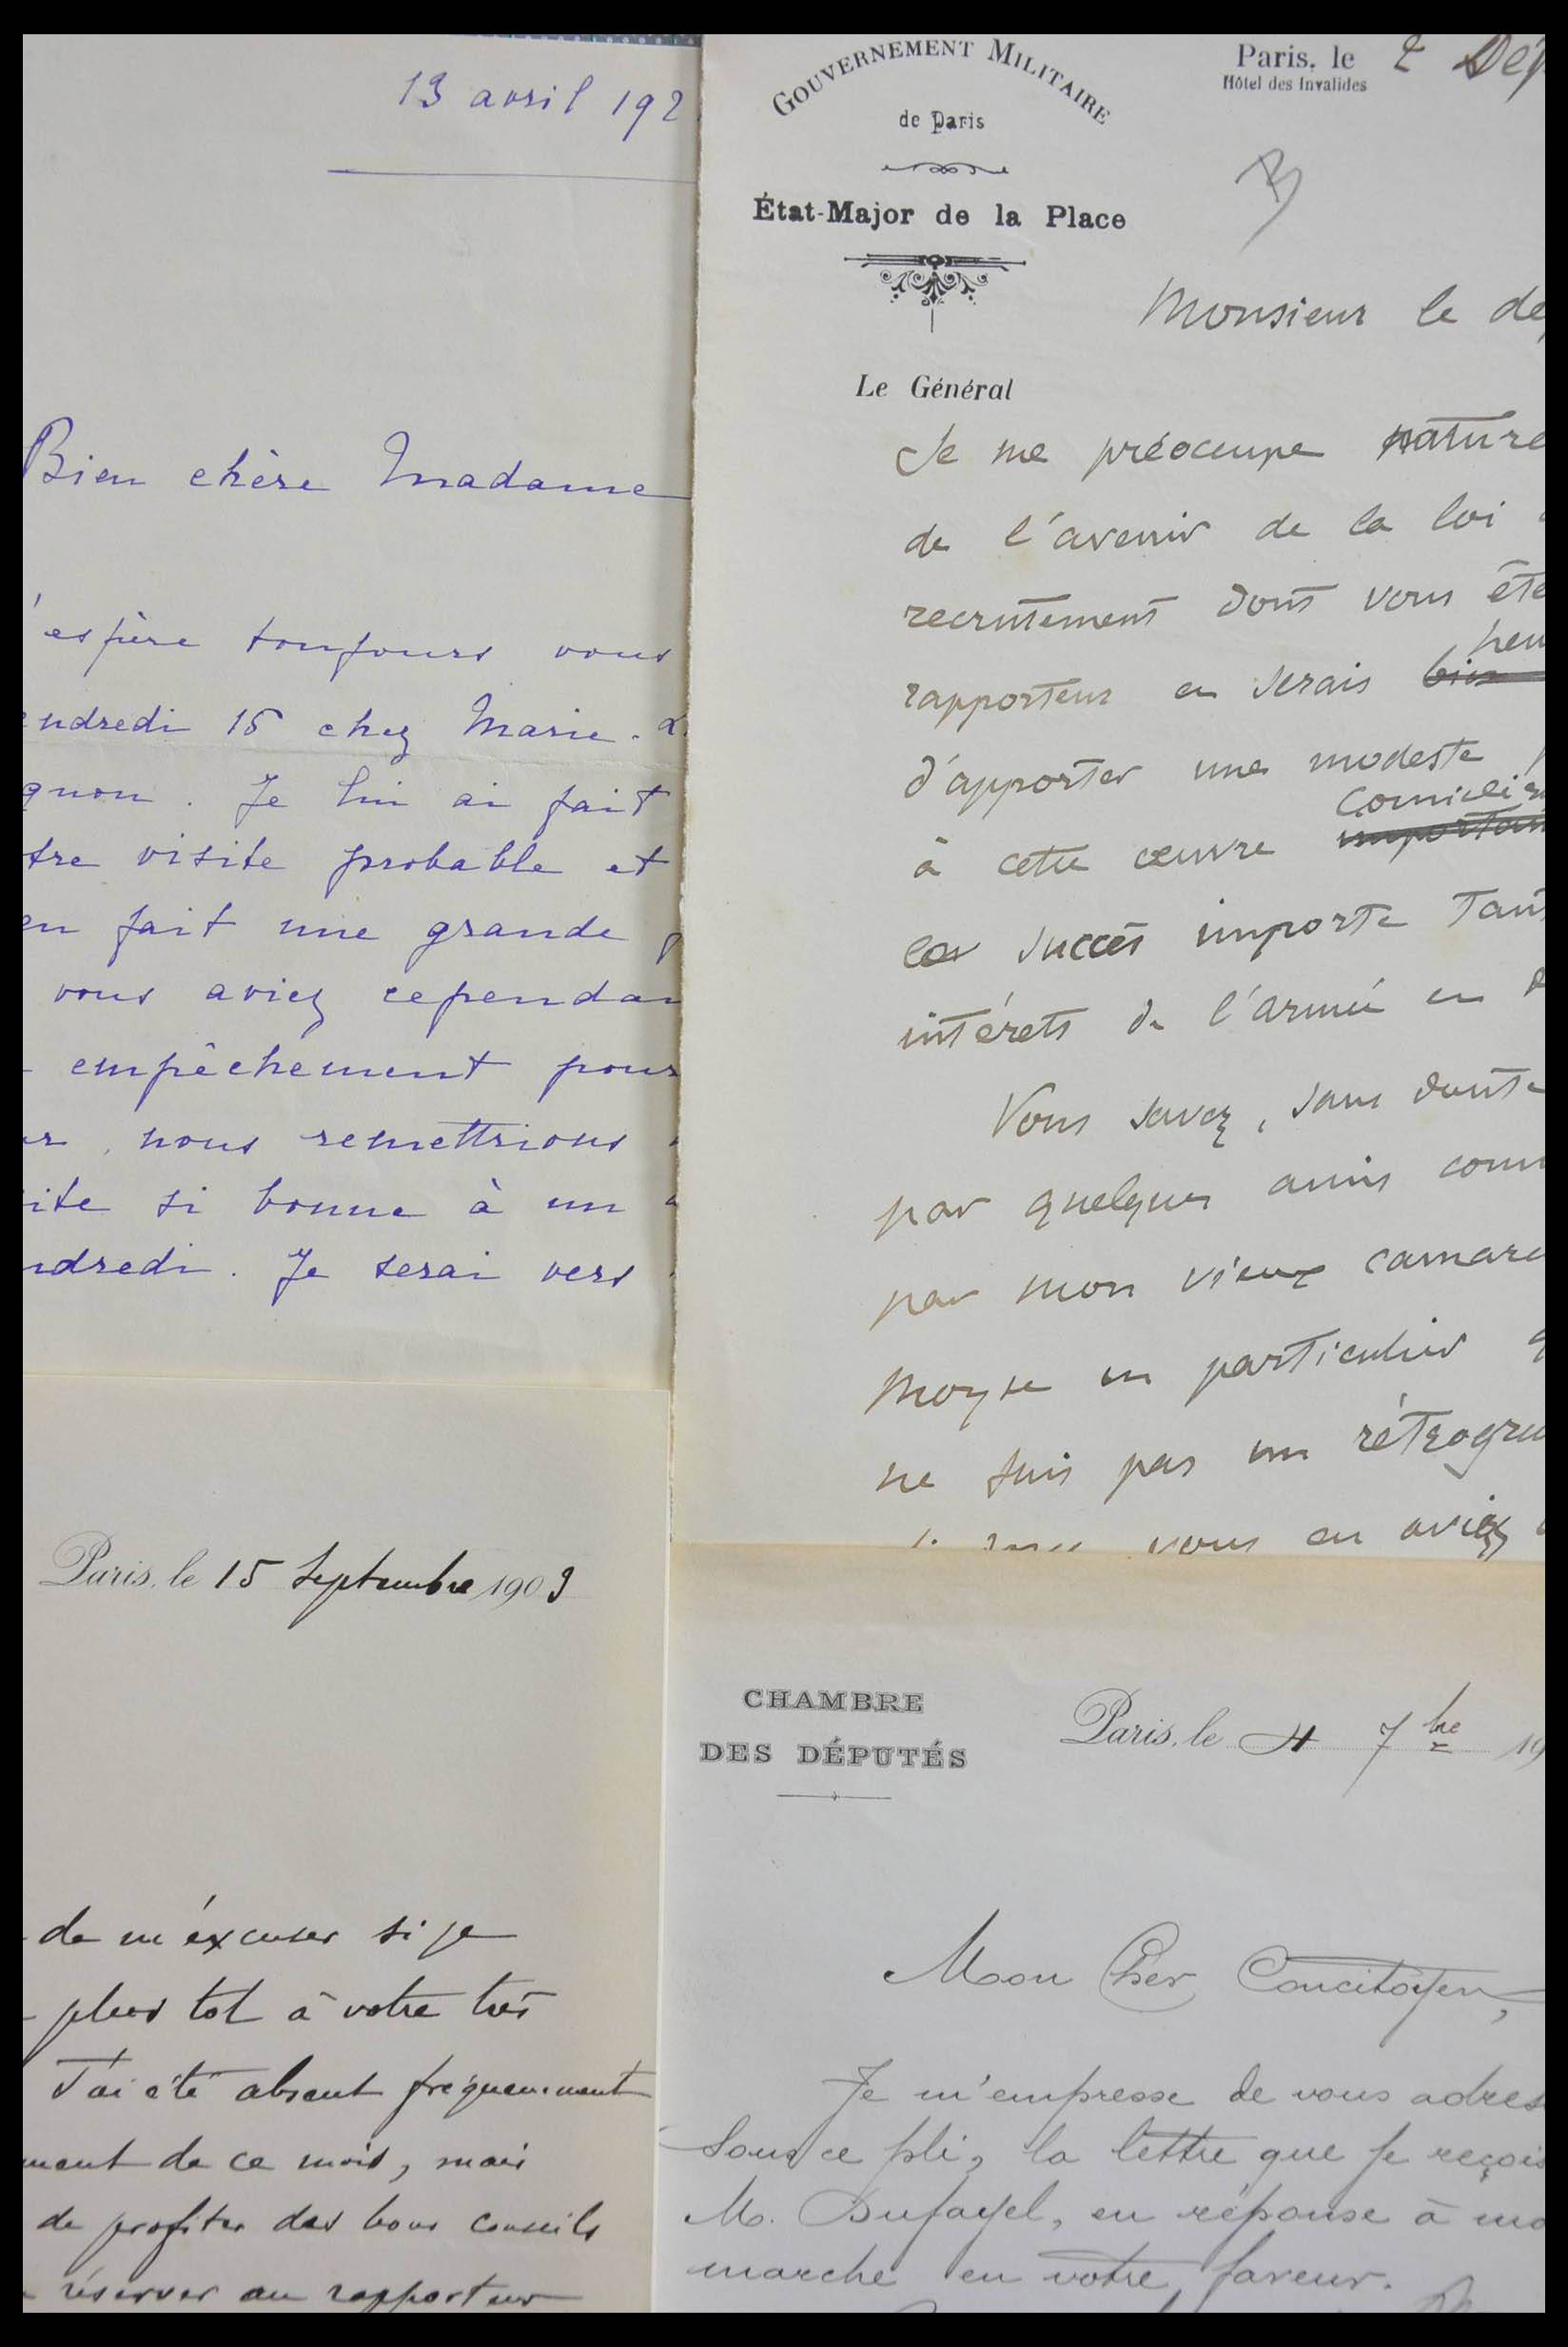 13 avril 192
Bien chère Madame
'espère toujours vous
endredi 15 chez Marie.
gnon. Je lui ai fait
tre visite probable et
en fait une grande
vous aviez cependan
empêchement pour
er, nous remettrions
ite si bonne à un
ndredi. Je serai vers
GOUVERNEMENT MILITAIRE
de Paris
État-Major de la Place
Paris, le 2 Dé
Hôtel des Invalides
Monsieur le dé
Le Général
Je me préoccupe nature
de l'avenir de la loi
recrutement dont vous ête
rapporteur et serais bien heu
d'apporter une modeste
à cette œuvre important
succès importe tant
intérêts de l'armée et
Vous savez, sans doute
par quelques amis comm
par mon vieux camara
Moyse en particulier q
ne suis pas un rétrogra
vous en aviez
Paris, le 15 Septembre 1909
de m'éxcuser si je
plus tot à votre très
J'ai été absent fréquemment
ment de ce mois, mais
de profiter des bons conseils
réserver au rapporteur
CHAMBRE
DES DÉPUTÉS
Paris, le 4 7bre 19
Mon Cher Concitoyen,
Je m'empresse de vous adres
sous ce pli, la lettre que je reçois
M. Dufayel, en réponse à ma
marche en votre faveur.